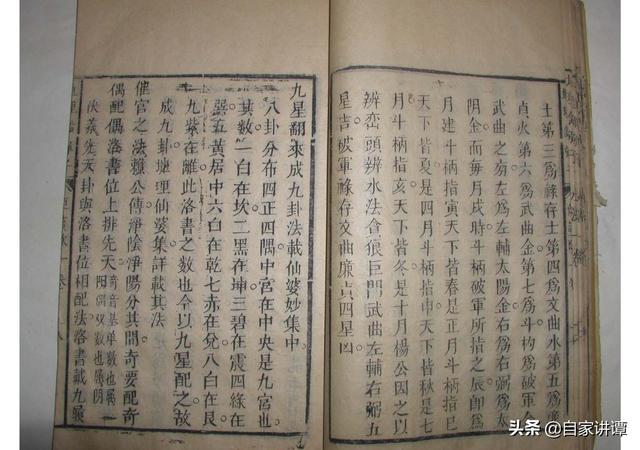 土第三爲祿存土第四爲文曲水第五爲廉
貞火第六爲武曲金第七爲斗杓爲破軍金
斗柄之旁左爲左輔太陽金右爲右弼爲太
陰金而每月戌時斗柄破軍所指之辰卽爲
月建斗柄指寅天下皆春是正月斗柄指巳
天下皆夏是四月斗柄指申天下皆秋是七
月斗柄指亥天下皆冬是十月楊公因之以
辨巒頭辨水法貪狼巨門武曲左輔右弼五
星吉破軍祿存文曲廉貞四星凶
九星翻來成九卦法載仙婆妙集中
八卦分布四正四隅中宮在中央是九宮也
其數一白在坎二黑在坤三碧在震四綠在
巽五黃居中六白在乾七赤在兌八白在艮
九紫在離此洛書之數也今以九星配之故
成九卦地理仙婆集詳載其法
催官之法賴公傳淨陰淨陽分其間奇要配奇
偶配偶洛書位上排先天奇音基单數也屬
陽偶双數也屬阴
伏羲先天卦與洛書位相配法洛書戴九履
头条 @自家讲谭